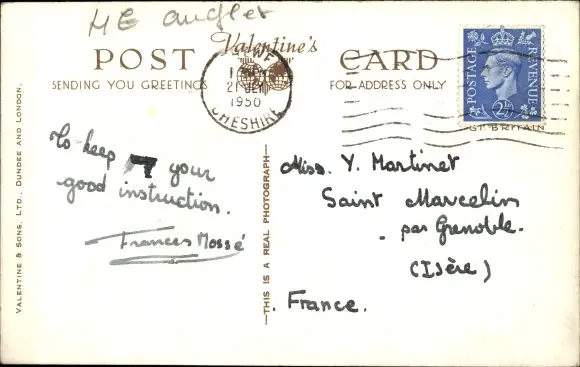 ME anglet
Valentine's
POST CARD
SENDING YOU GREETINGS
FOR ADDRESS ONLY
21
1950
CHESHIRE
POSTAGE
REVENUE
2½
GT. BRITAIN
To keep your
good instruction.
Frances Mossé
VALENTINE & SONS, LTD., DUNDEE AND LONDON.
—THIS IS A REAL PHOTOGRAPH—
Miss. Y. Martinet
Saint Marcelin
par Grenoble.
(Isère)
France.